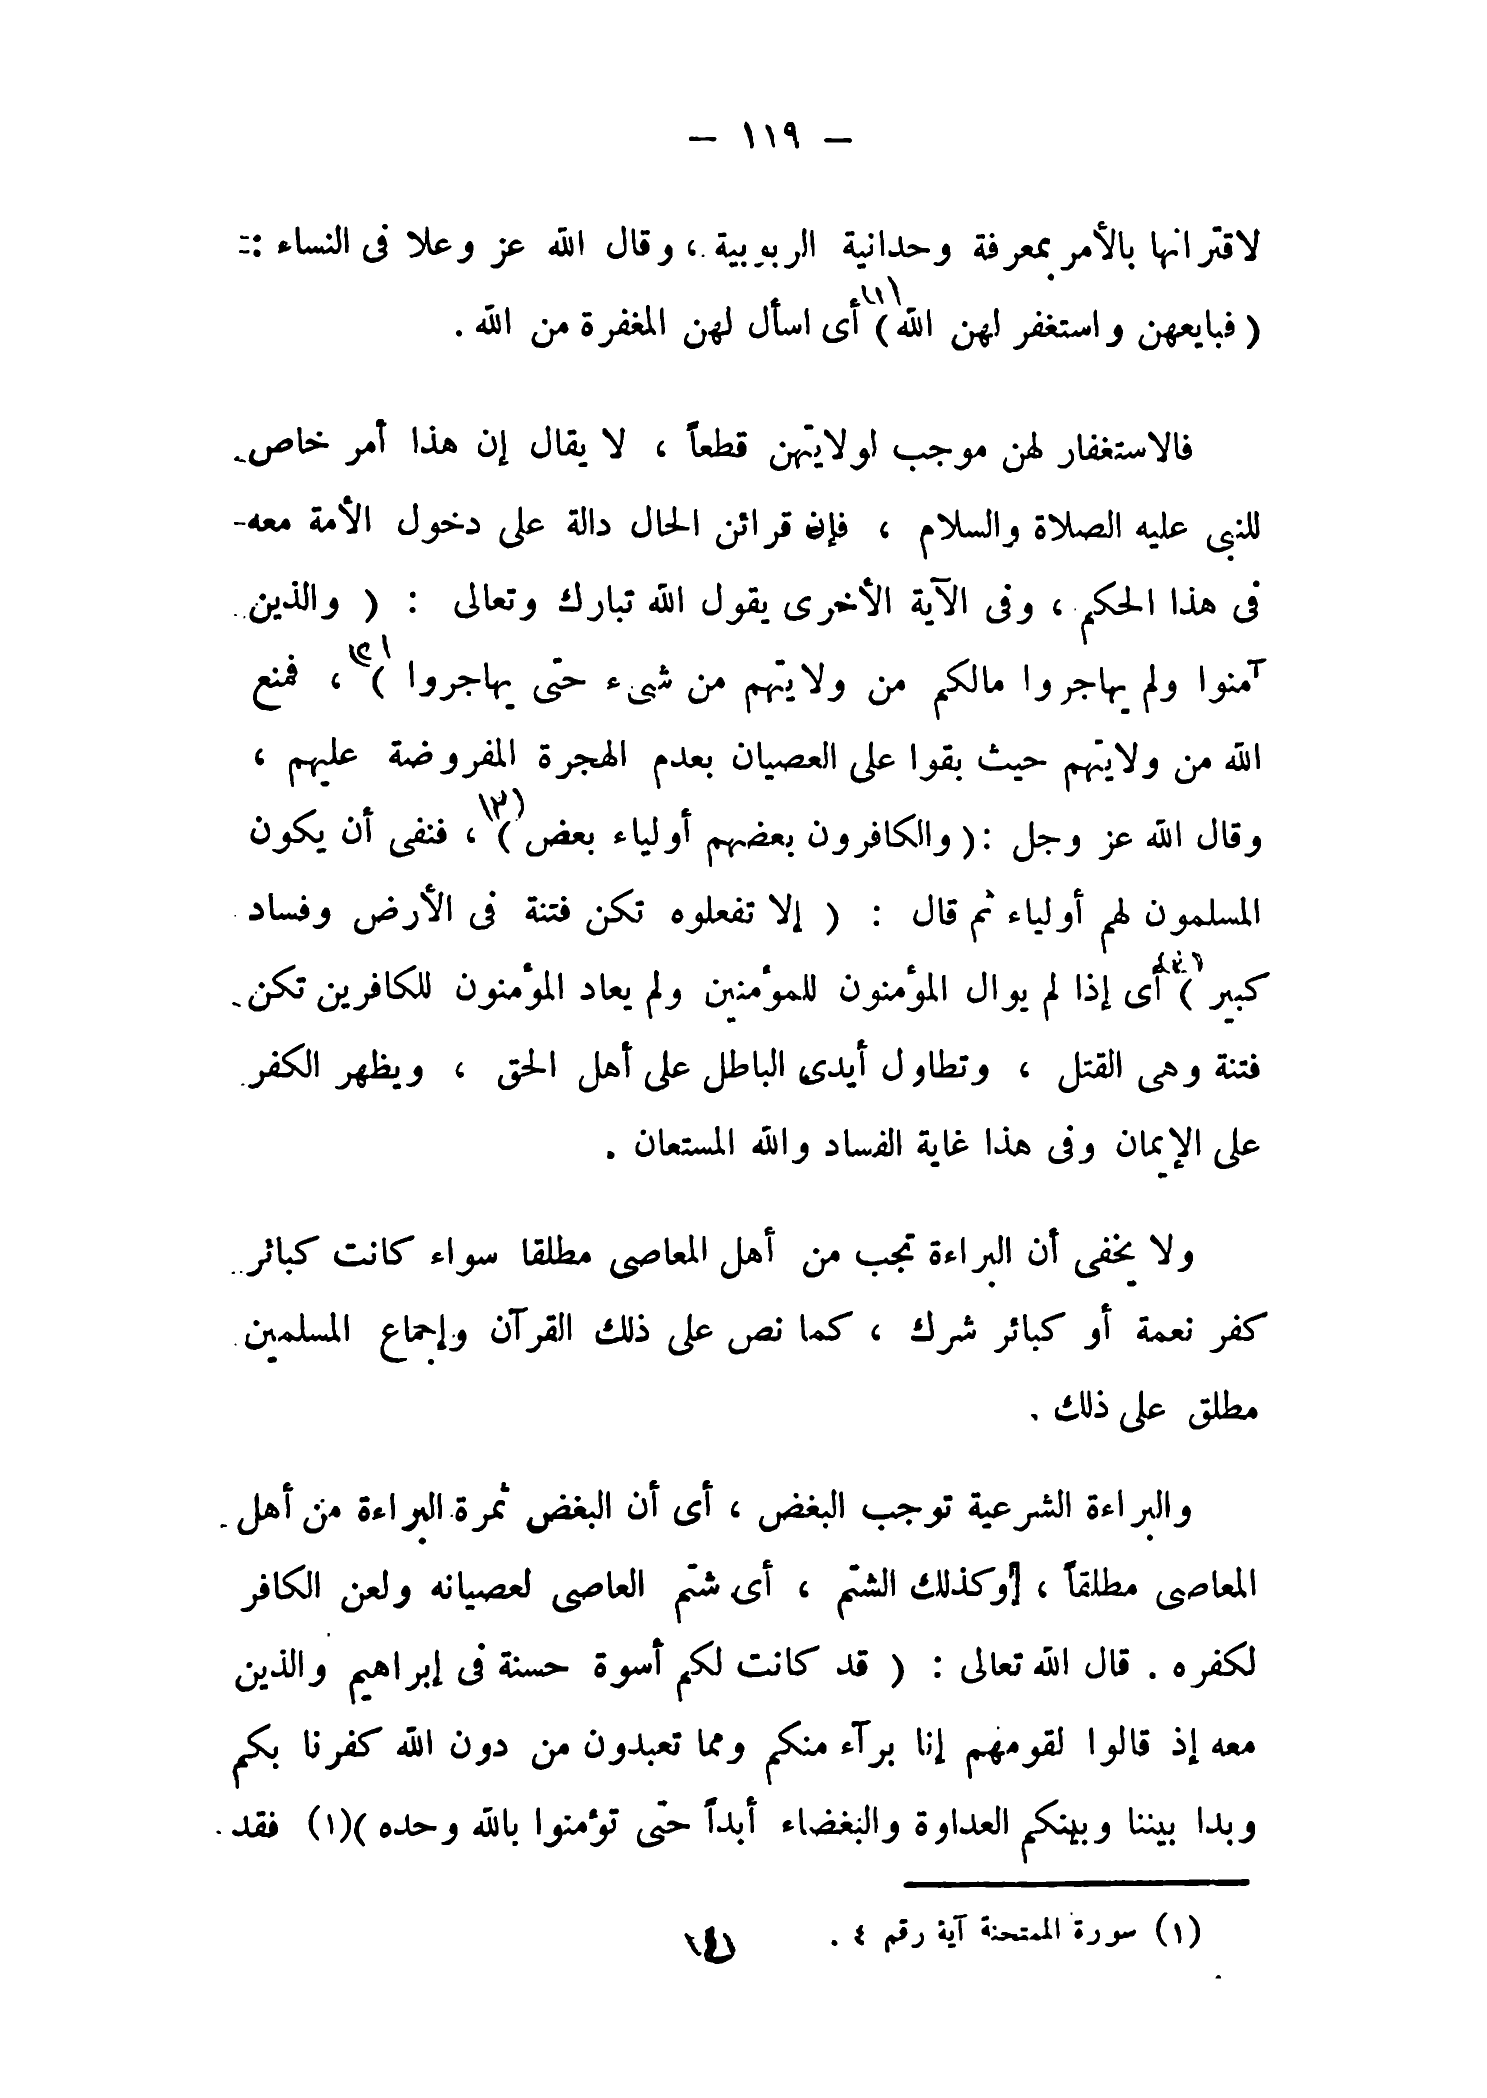 — ١١٩ —
لاقترانها بالأمر بمعرفة وحدانية الربوبية ، وقال الله عز وعلا فى النساء :
( فبايعهن واستغفر لهن الله )(١) أى اسأل لهن المغفرة من الله .
فالاستغفار لهن موجب اولايتهن قطعاً ، لا يقال إن هذا أمر خاص
للنبى عليه الصلاة والسلام ، فإن قرائن الحال دالة على دخول الأمة معه
فى هذا الحكم ، وفى الآية الأخرى يقول الله تبارك وتعالى : ( والذين
آمنوا ولم يهاجروا مالكم من ولايتهم من شىء حتى يهاجروا )(٢) ، فمنع
الله من ولايتهم حيث بقوا على العصيان بعدم الهجرة المفروضة عليهم ،
وقال الله عز وجل : ( والكافرون بعضهم أولياء بعض )(٣) ، فنفى أن يكون
المسلمون لهم أولياء ثم قال : ( إلا تفعلوه تكن فتنة فى الأرض وفساد
كبير )(٤) أى إذا لم يوال المؤمنون للمؤمنين ولم يعاد المؤمنون للكافرين تكن
فتنة وهى القتل ، وتطاول أيدى الباطل على أهل الحق ، ويظهر الكفر
على الإيمان وفى هذا غاية الفساد والله المستعان .
ولا يخفى أن البراءة تجب من أهل المعاصى مطلقا سواء كانت كبائر
كفر نعمة أو كبائر شرك ، كما نص على ذلك القرآن وإجماع المسلمين
مطلق على ذلك .
والبراءة الشرعية توجب البغض ، أى أن البغض ثمرة البراءة من أهل
المعاصى مطلقاً ، [وكذلك الشتم ، أى شتم العاصى لعصيانه ولعن الكافر
لكفره . قال الله تعالى : ( قد كانت لكم أسوة حسنة فى إبراهيم والذين
معه إذ قالوا لقومهم إنا برآء منكم ومما تعبدون من دون الله كفرنا بكم
وبدا بيننا وبينكم العداوة والبغضاء أبداً حتى تؤمنوا بالله وحده )(١) فقد
(١) سورة الممتحنة آية رقم ٤ .